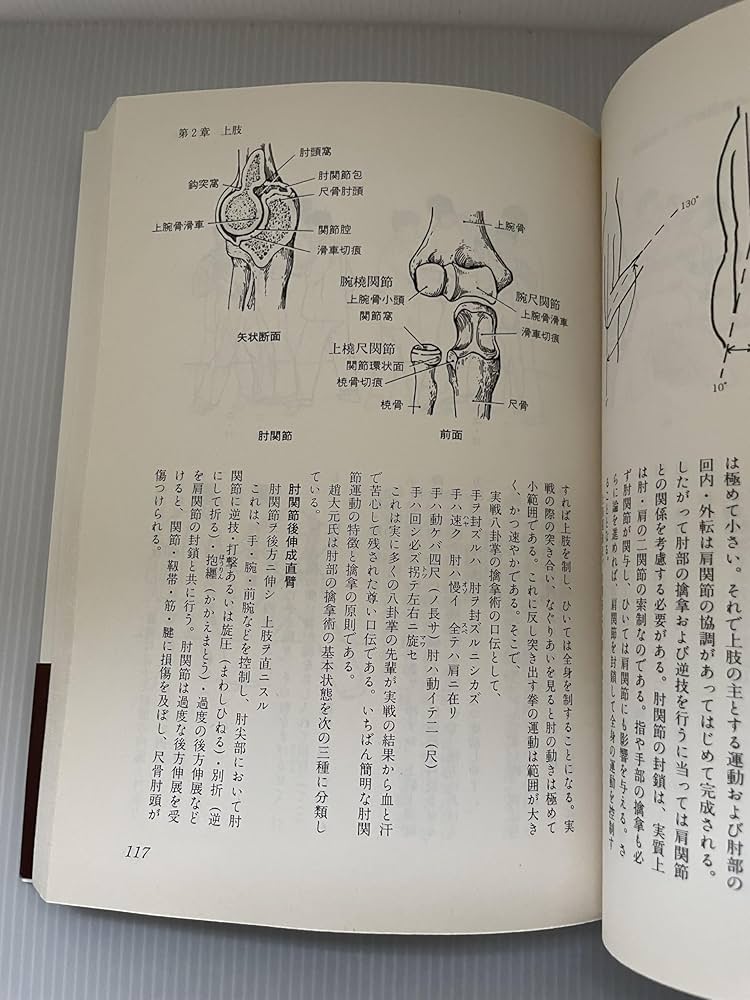 130°
10°
は極めて小さい。それで上肢の主とする運動および肘部の
回内・外転は肩関節の協調があってはじめて完成される。
したがって肘部の擒拿および逆技を行うに当っては肩関節
との関係を考慮する必要がある。肘関節の封鎖は、実質上
は肘・肩の二関節の索制なのである。指や手部の擒拿も必
ず肘関節が関与し、ひいては肩関節にも影響を与える。さ
らに論を進めれば、肩関節を封鎖して全身の運動を控制す
第2章 上肢
肘頭窩
鈎突窩
肘関節包
尺骨肘頭
上腕骨滑車
関節腔
滑車切痕
矢状断面
上腕骨
腕橈関節
上腕骨小頭
関節窩
腕尺関節
上腕骨滑車
滑車切痕
上橈尺関節
関節環状面
橈骨切痕
橈骨
尺骨
肘関節
前面
すれば上肢を制し、ひいては全身を制することになる。実
戦の際の突き合い、なぐりあいを見ると肘の動きは極めて
小範囲である。これに反し突き出す拳の運動は範囲が大き
く、かつ速やかである。そこで、
実戦八卦掌の擒拿術の口伝として、
手ヲ封ズルハ 肘ヲ封ズルニシカズ
手ハ速ク 肘ハ慢イ 全テハ肩ニ在リ
手ハ動ケバ四尺(ノ長サ)肘ハ動イテ二(尺)
手ハ回シ必ズ拐テ左右ニ旋セ
これは実に多くの八卦掌の先輩が実戦の結果から血と汗
で苦心して残された尊い口伝である。いちばん簡明な肘関
節運動の特徴と擒拿の原則である。
趙大元氏は肘部の擒拿術の基本状態を次の三種に分類し
ている。
肘関節後伸成直臂
肘関節ヲ後方ニ伸シ 上肢ヲ直ニスル
これは、手・腕・前腕などを控制し、肘尖部において肘
関節に逆技・打撃あるいは旋圧(まわしひねる)・別折(逆
にして折る)・抱纒(かかえまとう)・過度の後方伸展など
を肩関節の封鎖と共に行う。肘関節は過度な後方伸展を受
けると、関節・靱帯・筋・腱に損傷を及ぼし、尺骨肘頭が
傷つけられる。
117